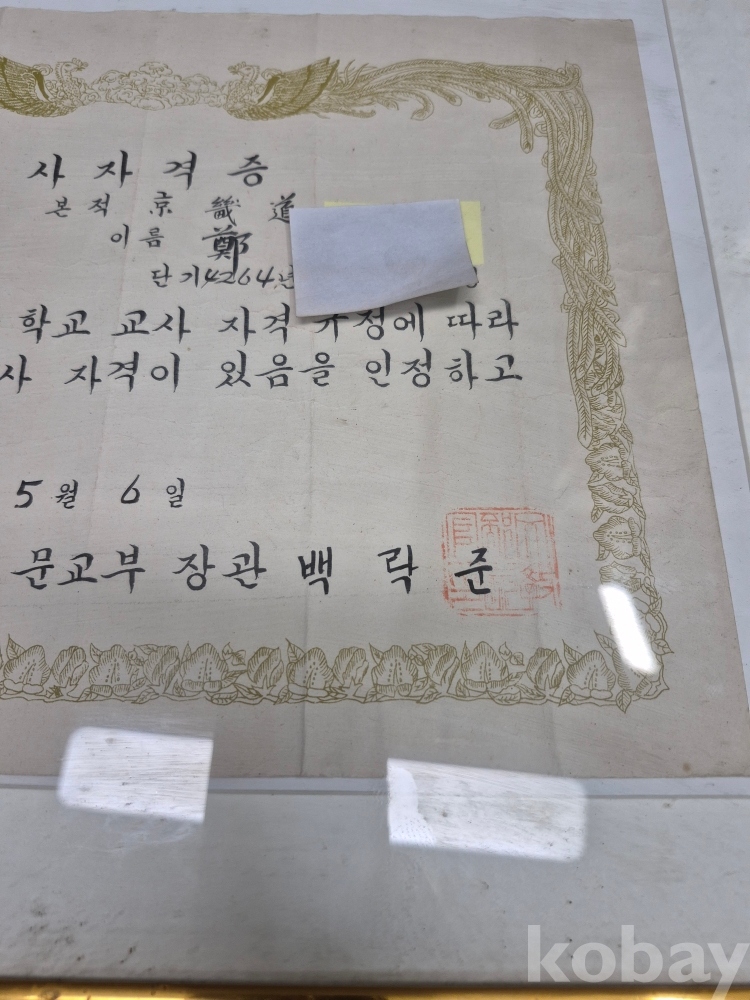 사 자 격 증
본 적 京 畿 道
이 름 鄭
단기 4264년
학교 교사 자격 규정에 따라
사 자격이 있음을 인정하고
5 월 6 일
문교부 장관 백 락 준
kobay